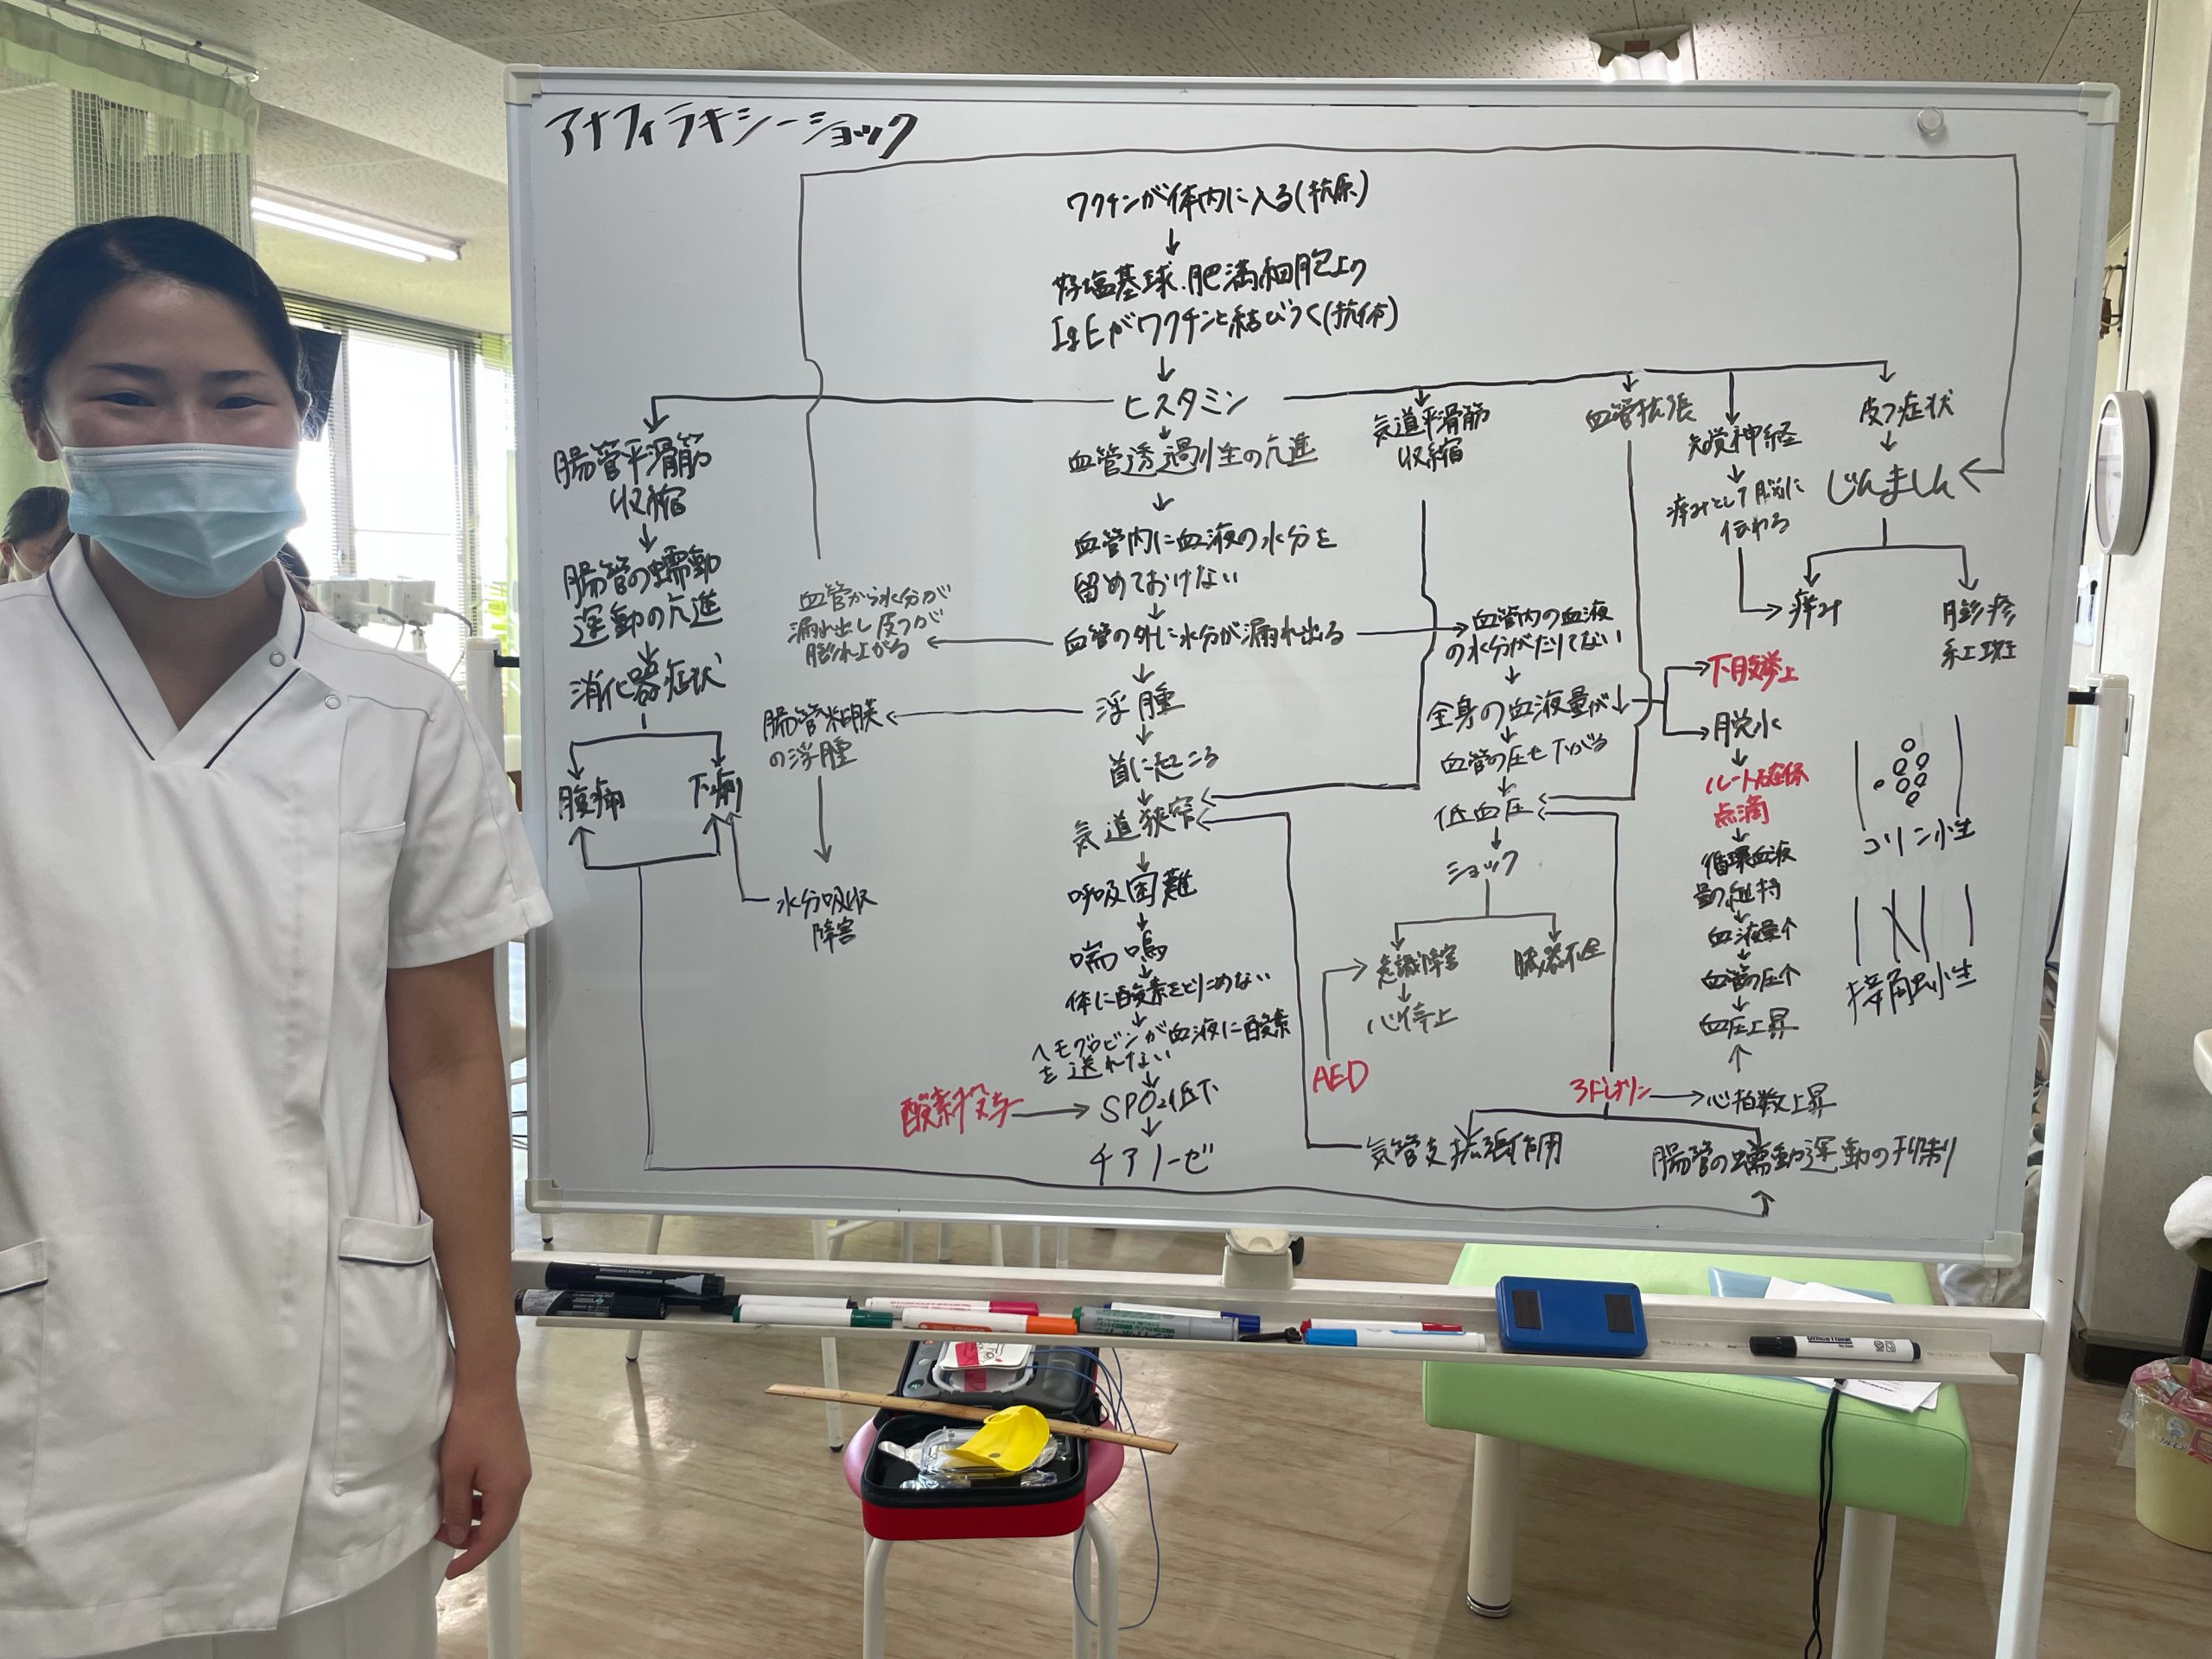 アナフィラキシーショック
ワクチンが体内に入る(抗原)
↓
好塩基球、肥満細胞上の
IgEがワクチンと結びつく(抗体)
↓
ヒスタミン
腸管平滑筋
収縮
↓
腸管の蠕動
運動の亢進
↓
消化器症状
腹痛
下痢
血管から水分が
漏れ出し皮フが
膨れ上がる
腸管粘膜
の浮腫
水分吸収
障害
血管透過性の亢進
↓
血管内に血液の水分を
留めておけない
↓
血管の外に水分が漏れ出る
↓
浮腫
↓
首に起こる
↓
気道狭窄
↓
呼吸困難
↓
喘鳴
↓
体に酸素をとりこめない
↓
ヘモグロビンが血液に酸素
を送れない
↓
酸素投与→SPO2低下
↓
チアノーゼ
気道平滑筋
収縮
血管内の血液
の水分がたりてない
↓
全身の血液量が↓
↓
血管の圧も下がる
↓
低血圧
↓
ショック
意識障害
↓
心停止
臓器不全
AED
血管拡張
知覚神経
↓
痒みとして脳に
伝わる
皮フ症状
↓
じんましん
痒み
膨疹
紅斑
下肢挙上
脱水
↓
ルート確保
点滴
↓
循環血液
量の維持
↓
血液量↑
↓
血管の圧↑
↓
血圧上昇
↑
アドレナリン→心拍数上昇
気管支拡張作用
腸管の蠕動運動の抑制
コリン性
接触性